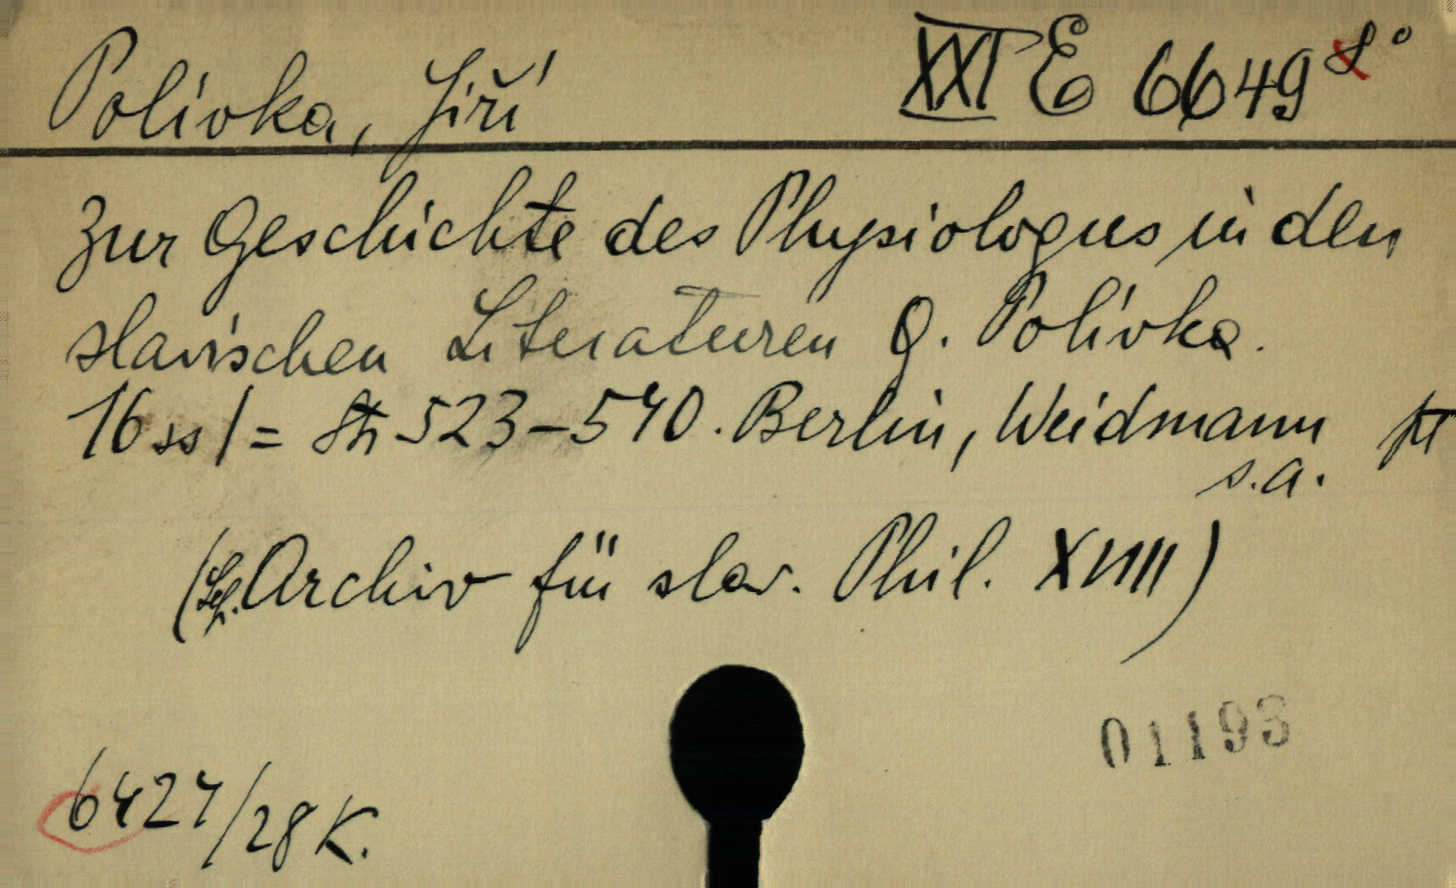 Polívka, Jiří XXI E 6649 8°
Zur Geschichte des Physiologus in den
slavischen Literaturen G. Polívka.
16 ss /= Str 523-540. Berlin, Weidmann
s.a.
(Archiv für slav. Phil. XVIII)
01193
6427/28 K.